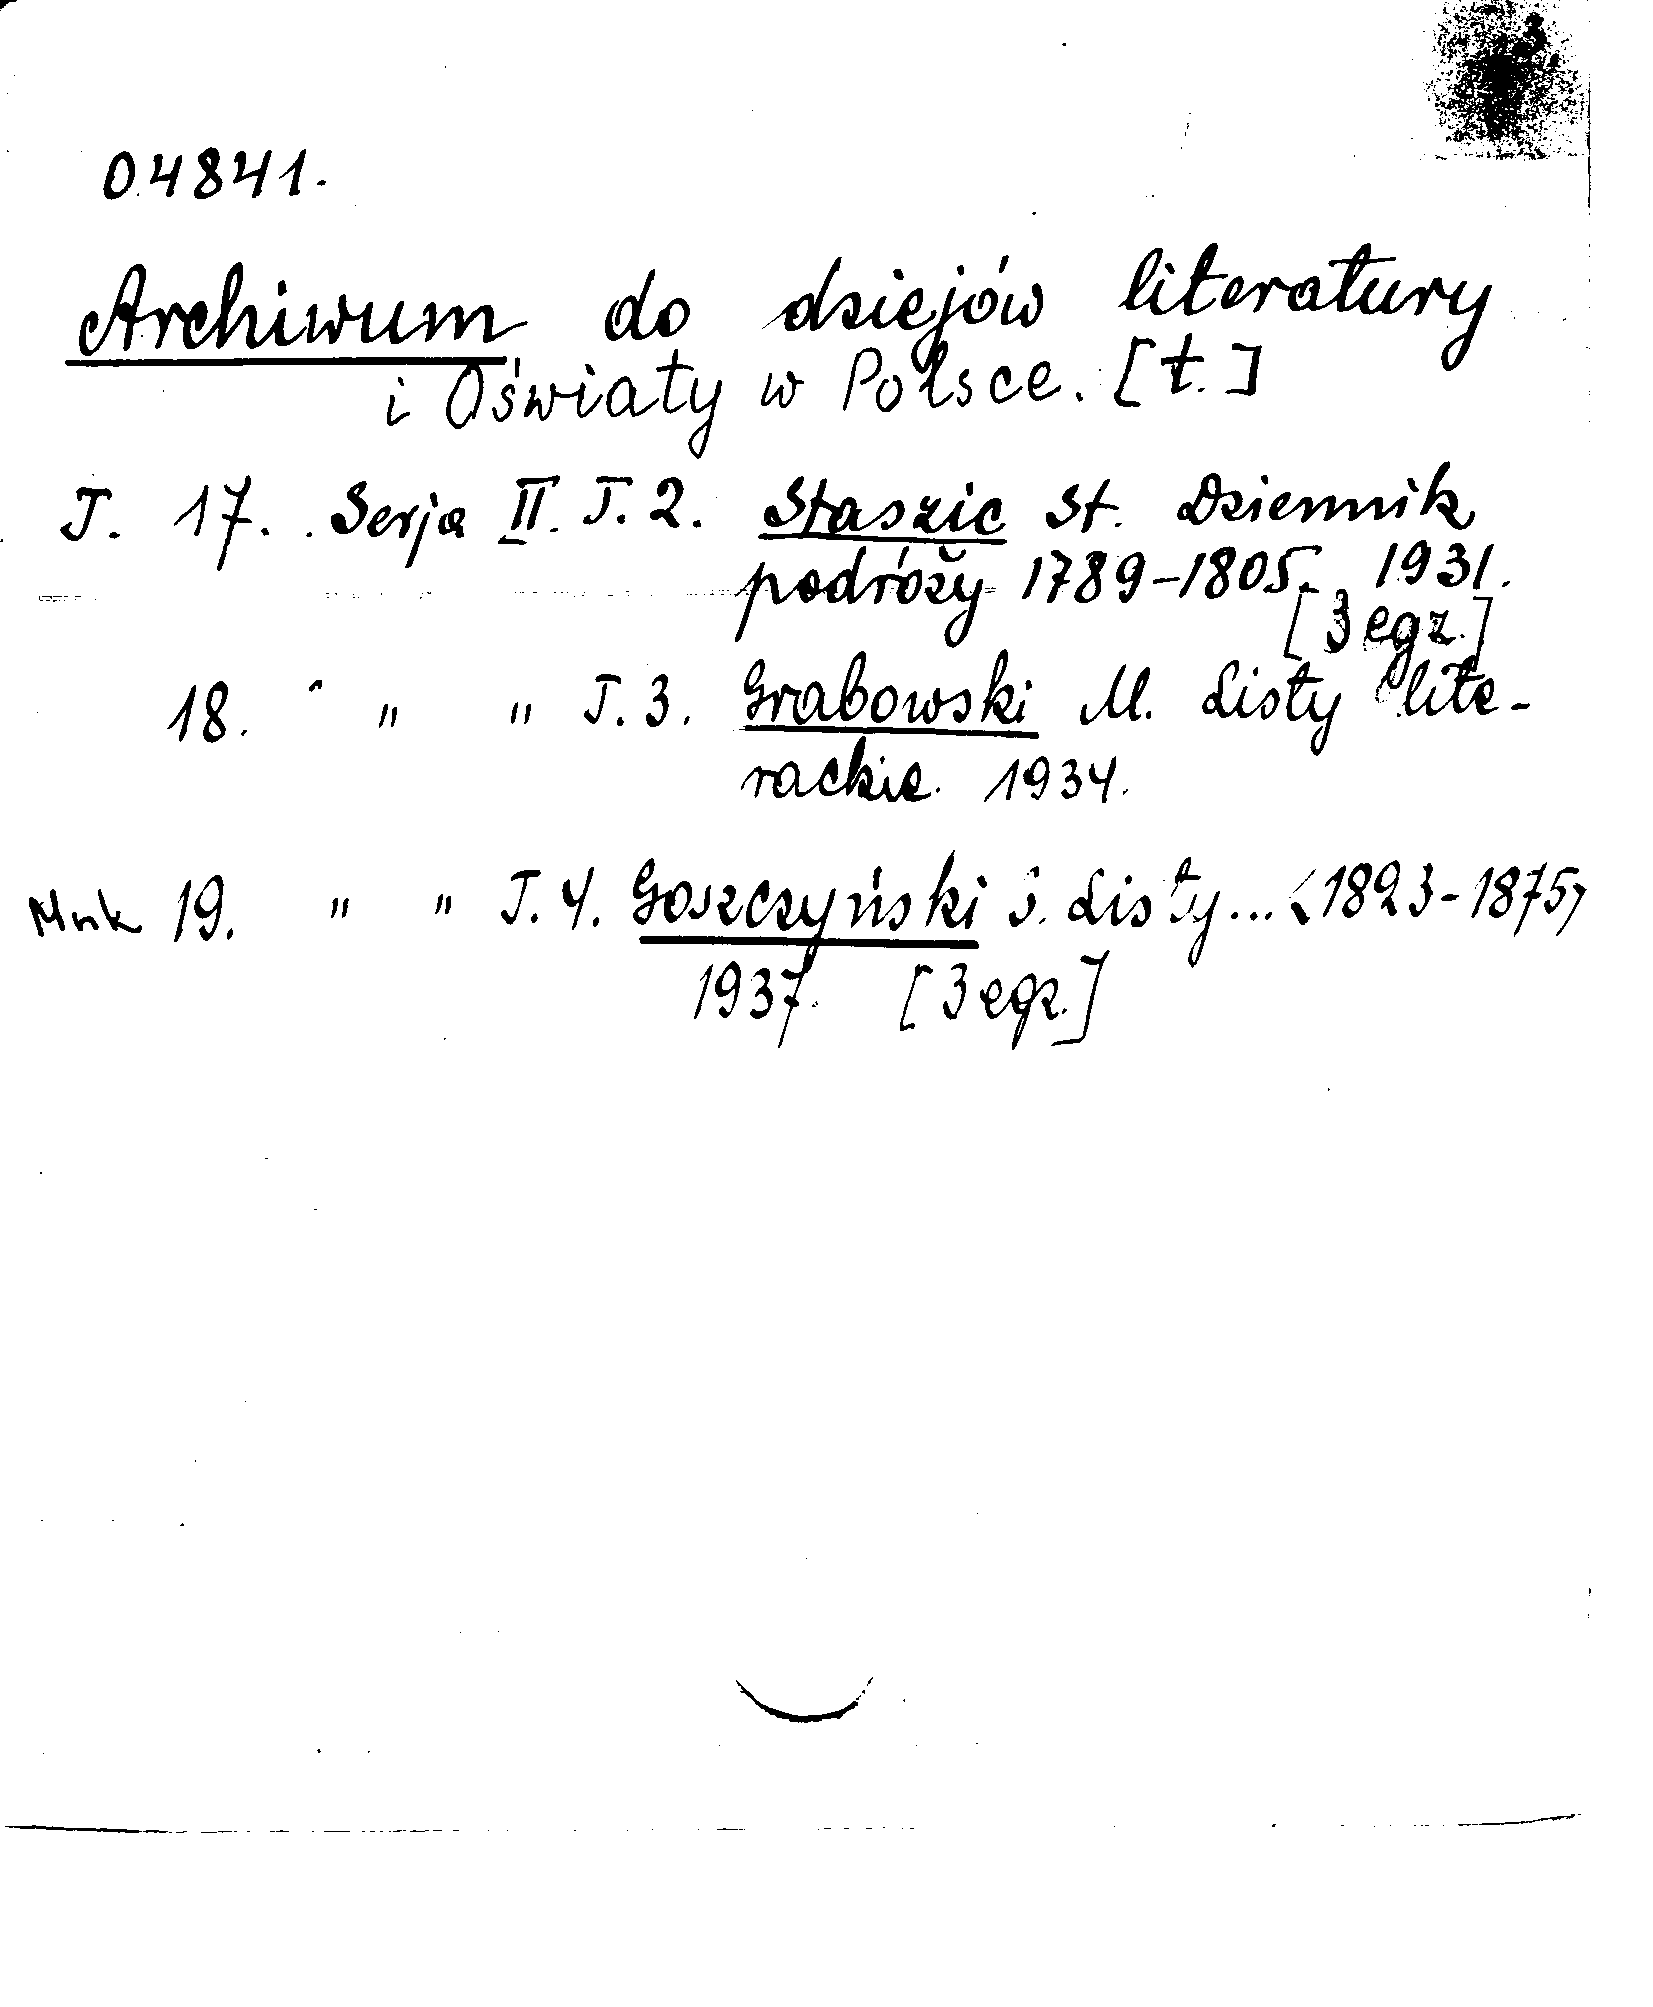 04841.
Archiwum do dziejów literatury
i Oświaty w Polsce. [t.]
T. 17. Serja II. T. 2. Staszic St. Dziennik
podróży 1789-1805. 1931.
[3 egz.]
18. " " T. 3. Grabowski M. Listy lite-
rackie. 1934.
19. " " T. 4. Goszczyński S. Listy... <1823-1875>
1937. [3 egz.]